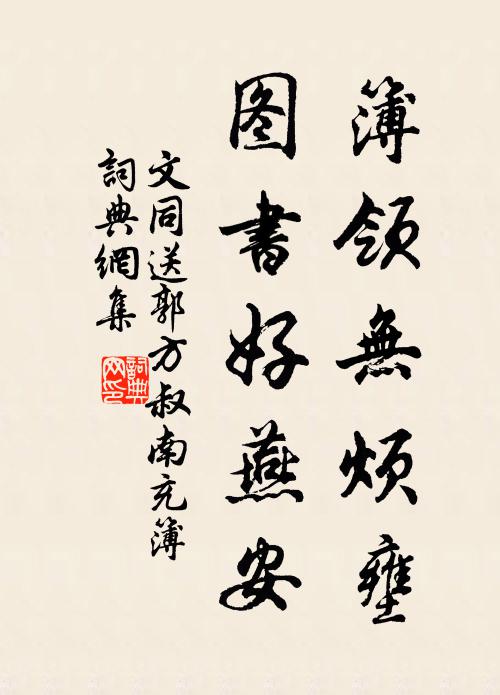 簿領無煩壅
图書好燕安
文同送郭方叔南充簿
詞典網集
詞典
网印